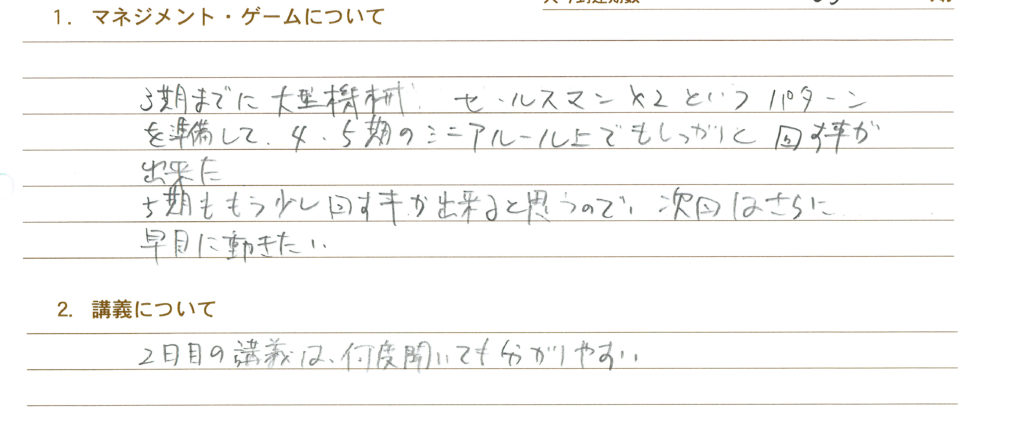 1. マネジメント・ゲームについて
3期までに大型機械、セールスマン×2というパターン
を準備して、4、5期のシニアルール上でもしっかりと回す事が
出来た
5期ももう少し回す事が出来ると思うので、次回はさらに
早目に動きたい
2. 講義について
2日目の講義は、何度聞いても分かりやすい